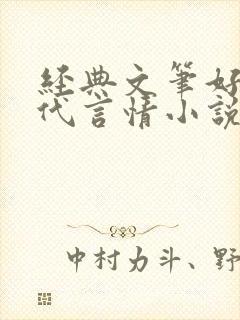 經典文筆好
代言情小說
中村力斗、野